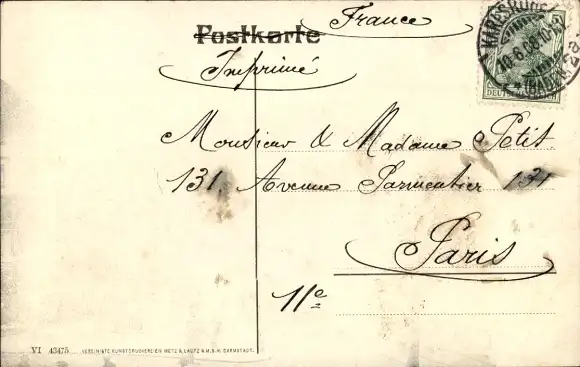 France
Postkarte
Imprimé
KARLSRUHE
10.6.08.10-11
(BADEN)
DEUTSCHES REICH
Monsieur & Madame Petit.
131, Avenue Parmentier 131
Paris
11e
VI 43475 VEREINIGTE KUNSTDRUCKEREIEN METZ & LAUTZ G.M.B.H. DARMSTADT.